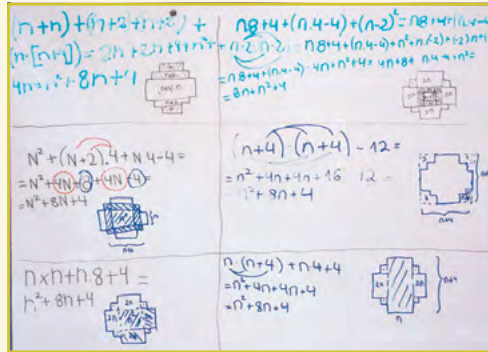 (n+n)+(n+2+n+2)+
(n·[n+4])=2n+2n+4+n²+
4n=n²+8n+4
n8+4+(n·4-4)+(n-2)²=n8+4+(n·4-4)
+(n-2)(n-2)=n8+4+(n·4-4)+n²+n·(-2)+(-2)·n+4
=n8+4+(n·4-4)·4n+n²+4=4n+8+n·4-4+n²=
=8n+n²+4
N²+(N+2)·4+N4-4=
=N²+4N+8+4N-4=
=N²+8N+4
n+2
(n+4)·(n+4)-12=
=n²+4n+4n+16-12=
n²+8n+4
n+4
n×n+n·8+4=
n²+8n+4
2n
2n
2n
n·(n+4)+n·4+4
=n²+4n+4n+4
=n²+8n+4
2n
2n
n+4
n